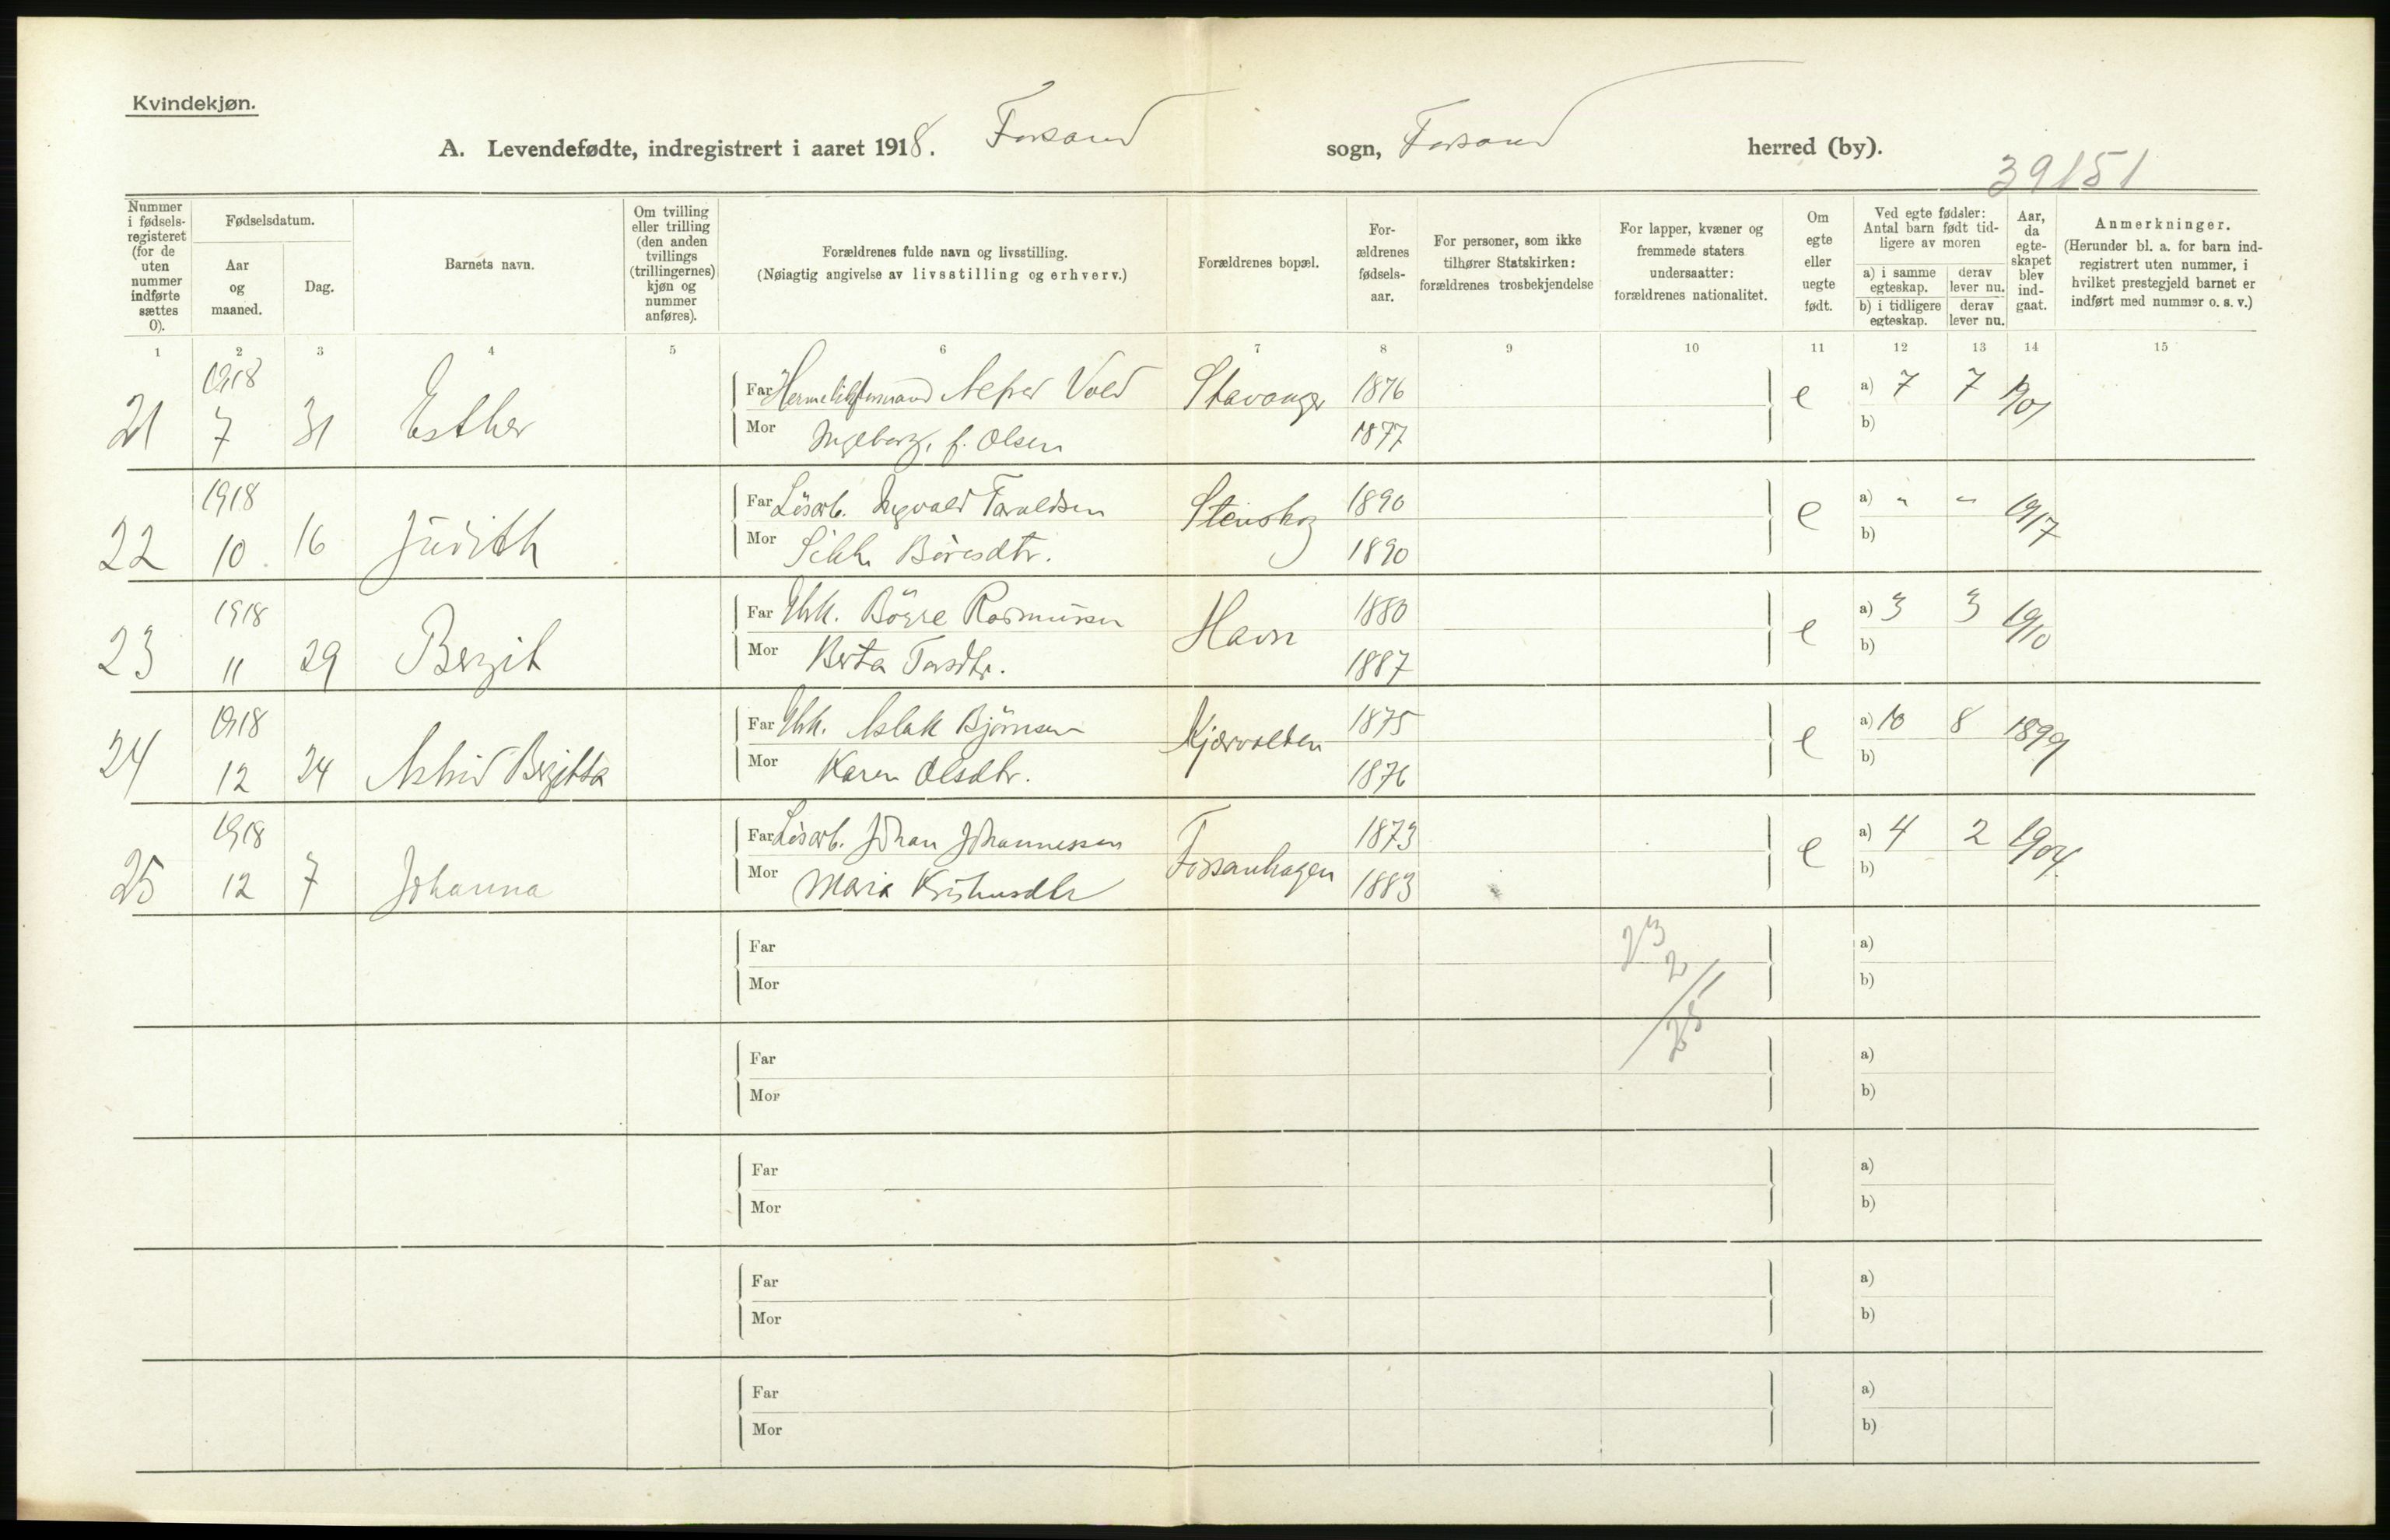 Kvindekjøn.
A. Levendefødte, indregistrert i aaret 1918. Forsand sogn, Forsand herred (by).
39151
Nummer i fødsels-registeret (for de uten nummer indførte sættes 0).
Fødselsdatum.
Aar og maaned.
Dag.
Barnets navn.
Om tvilling eller trilling (den anden tvillings (trillingernes) kjøn og nummer anføres).
Forældrenes fulde navn og livsstilling.
(Nøiagtig angivelse av livsstilling og erhverv.)
Forældrenes bopæl.
For-ældrenes fødsels-aar.
For personer, som ikke tilhører Statskirken: forældrenes trosbekjendelse
For lapper, kvæner og fremmede staters undersaatter: forældrenes nationalitet.
Om egte eller uegte født.
Ved egte fødsler: Antal barn født tid-ligere av moren
a) i samme egteskap. derav lever nu.
b) i tidligere egteskap. derav lever nu.
Aar, da egte-skapet blev ind-gaat.
Anmerkninger.
(Herunder bl. a. for barn ind-registrert uten nummer, i hvilket prestegjeld barnet er indført med nummer o. s. v.)
1 2 3 4 5 6 7 8 9 10 11 12 13 14 15
21 1918 7 31 Esther Far Alfred Vold Stavanger 1876 e a) 7 7 1901
Mor Ingeborg, f. Olsen 1877 b)
22 1918 10 16 Judith Far Lösarb. Ingvald Taraldsen 1890 e a) " " 1917
Mor Böresdtr. 1890 b)
23 1918 11 29 Bergit Far Gbk. Börre Rasmussen Havn 1880 e a) 3 3 1910
Mor Berta Torsdtr. 1887 b)
24 1918 12 24 Astrid Bergitta Far Gbk. Aslak Björnsen 1875 e a) 10 8 1899
Mor Karen Olsdtr. 1876 b)
25 1918 12 7 Johanna Far Lösarb. Johan Johannessen Fossanhagen 1873 e a) 4 2 1904
Mor Maria 1883 b)
23
2
25
Far a)
Mor b)
Far a)
Mor b)
Far a)
Mor b)
Far a)
Mor b)
Far a)
Mor b)